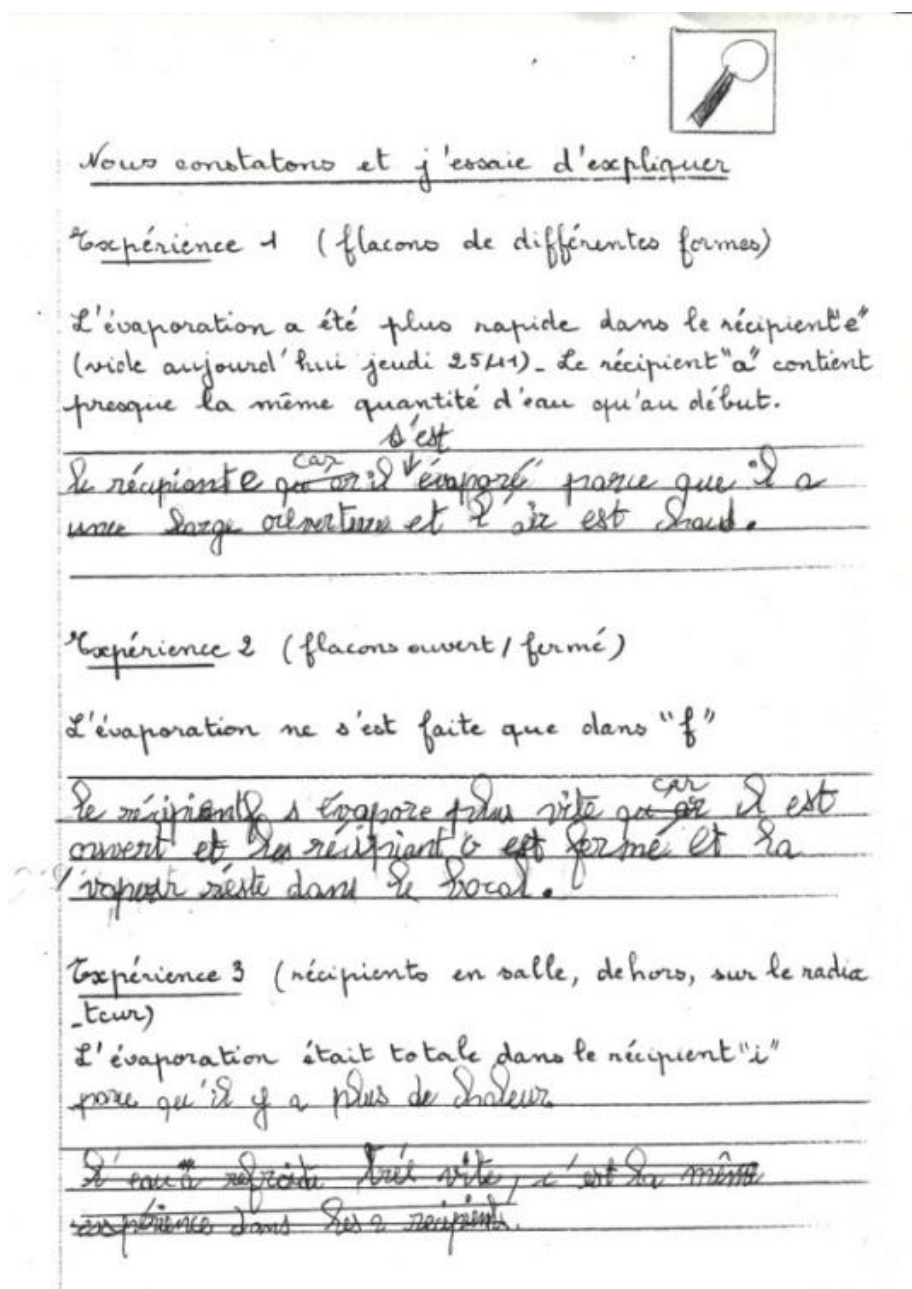 Nous constatons et j'essaie d'expliquer
Expérience 1 (flacons de différentes formes)
L'évaporation a été plus rapide dans le récipient "e"
(vide aujourd'hui jeudi 25/11). Le récipient "a" contient
presque la même quantité d'eau qu'au début.
s'est
car
le récipiant e il évaporé parce que il a
une large ouverture et l'air est chaud.
Expérience 2 (flacons ouvert / fermé)
L'évaporation ne s'est faite que dans "f"
car
le récipient f s évapore plus vite il est
ouvert et les récipiant est fermé et la
vapeur reste dans le bocal.
Expérience 3 (récipients en salle, dehors, sur le radia
-teur)
L'évaporation était totale dans le récipient "i"
parce qu'il y a plus de chaleur
l'eau a refroidi tré vite, c'est la même
expérience dans les 2 récipients.